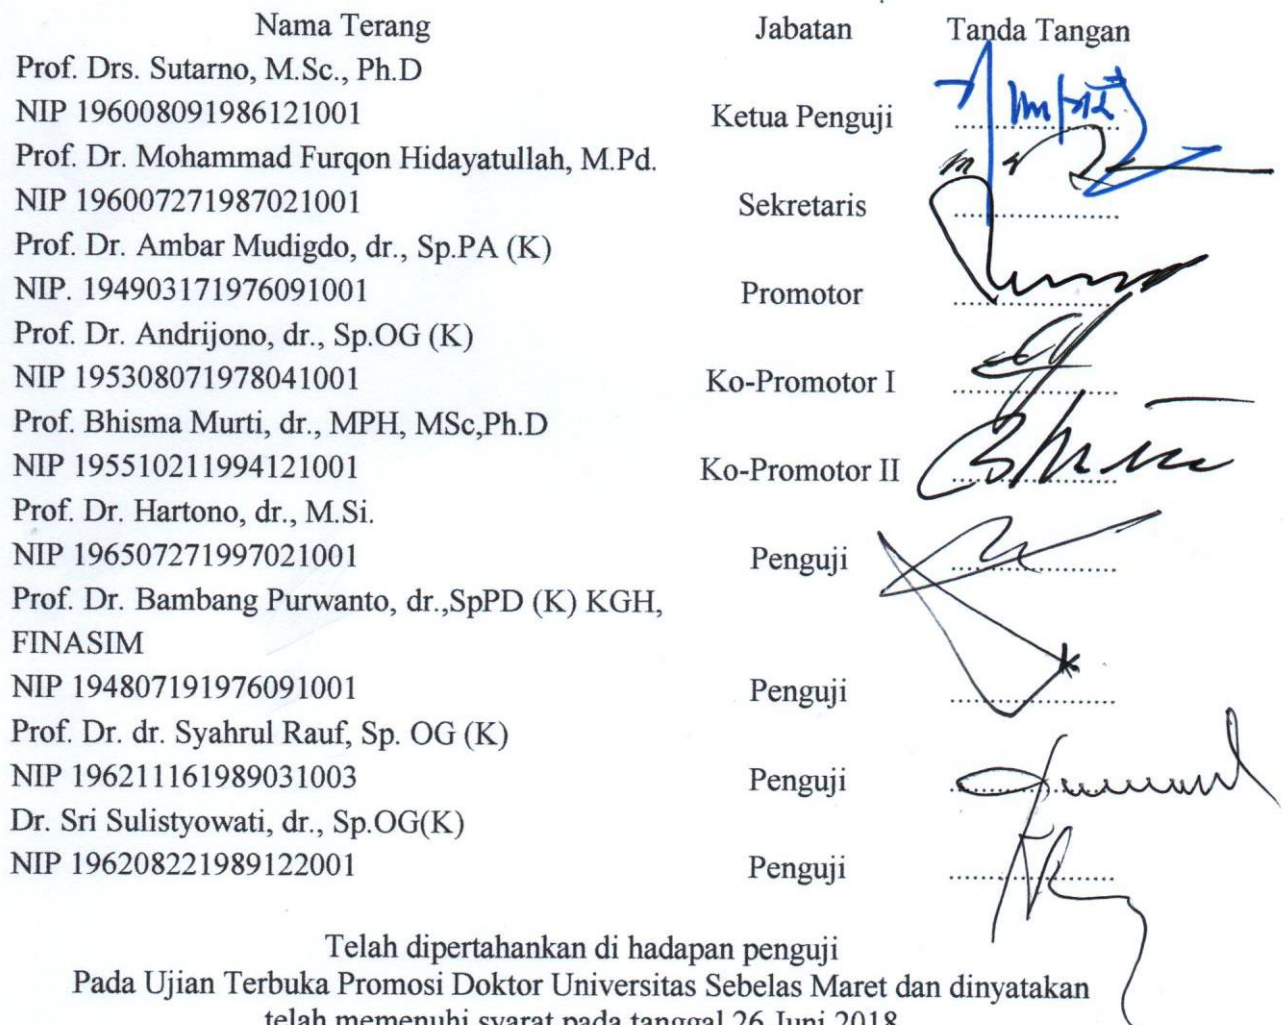 Nama Terang Jabatan Tanda Tangan
Prof. Drs. Sutarno, M.Sc., Ph.D
NIP 196008091986121001 Ketua Penguji ....................
Prof. Dr. Mohammad Furqon Hidayatullah, M.Pd.
NIP 196007271987021001 Sekretaris ....................
Prof. Dr. Ambar Mudigdo, dr., Sp.PA (K)
NIP. 194903171976091001 Promotor ....................
Prof. Dr. Andrijono, dr., Sp.OG (K)
NIP 195308071978041001 Ko-Promotor I ....................
Prof. Bhisma Murti, dr., MPH, MSc,Ph.D
NIP 195510211994121001 Ko-Promotor II ....................
Prof. Dr. Hartono, dr., M.Si.
NIP 196507271997021001 Penguji ....................
Prof. Dr. Bambang Purwanto, dr.,SpPD (K) KGH,
FINASIM
NIP 194807191976091001 Penguji ....................
Prof. Dr. dr. Syahrul Rauf, Sp. OG (K)
NIP 196211161989031003 Penguji ....................
Dr. Sri Sulistyowati, dr., Sp.OG(K)
NIP 196208221989122001 Penguji ....................
Telah dipertahankan di hadapan penguji
Pada Ujian Terbuka Promosi Doktor Universitas Sebelas Maret dan dinyatakan
telah memenuhi syarat pada tanggal 26 Juni 2018